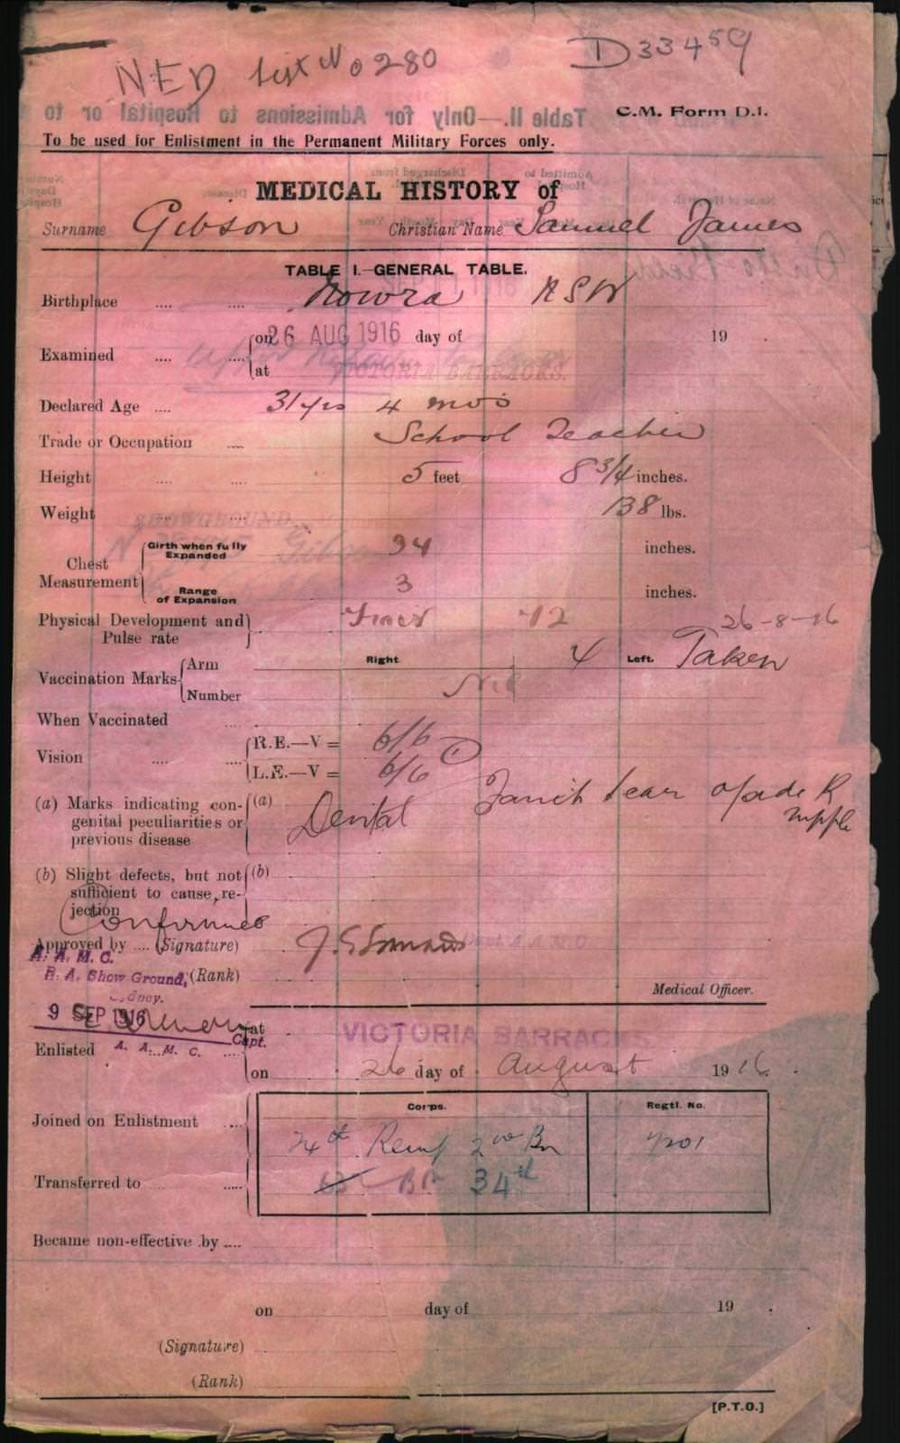 NED List No 280 D33459
C.M. Form D.I.
Table II.—Only for Admissions to Hospital or to
To be used for Enlistment in the Permanent Military Forces only.
MEDICAL HISTORY of
Surname Gibson Christian Name Samuel James
TABLE I.—GENERAL TABLE.
Birthplace .... .... Nowra NSW
Examined .... .... on 26 AUG 1916 day of 19
at VICTORIA BARRACKS.
Declared Age .... 31 yrs 4 mos
Trade or Occupation .... School Teacher
Height .... .... 5 feet 8 3/4 inches.
Weight 138 lbs.
SHOWGROUND
Chest Measurement Girth when fully Expanded 34 inches.
Range of Expansion 3 inches.
Physical Development and Pulse rate 72 26-8-16
Vaccination Marks Arm Right 4 Left. Taken
Number Nil
When Vaccinated ....
Vision .... .... R.E.—V = 6/6
L.E.—V = 6/6
(a) Marks indicating congenital peculiarities or previous disease (a) Dental R nipple
(b) Slight defects, but not sufficient to cause rejection (b)
Confirmed
Approved by .... (Signature)
A. A. M. C.
R. A. Show Ground, (Rank)
Sydney.
Medical Officer.
9 SEP 1916
Capt.
A. A. M. C.
Enlisted .... at VICTORIA BARRACKS.
on 26 day of August 1916.
Corps. Regtl. No.
Joined on Enlistment .... 24th Reinf 2nd Bn 7201
Transferred to .... Bn 34th
Became non-effective by ....
on day of 19 .
(Signature)
(Rank)
[P.T.O.]